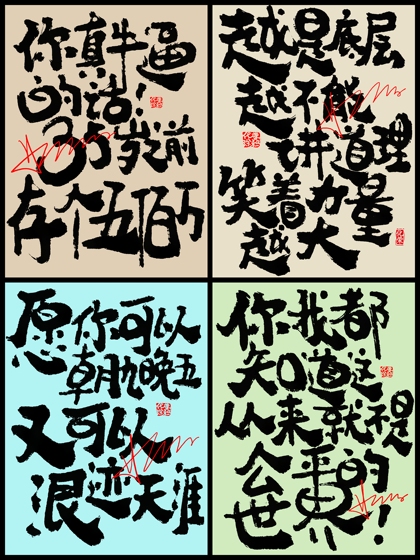 你真牛逼
的话！
30岁前
存个五佰万
越是底层
越不能
讲道理
笑着力量
越大
愿你可以
朝九晚五
又可以
浪迹天涯
你我都
知道这
从来就不是
公平的
世界！